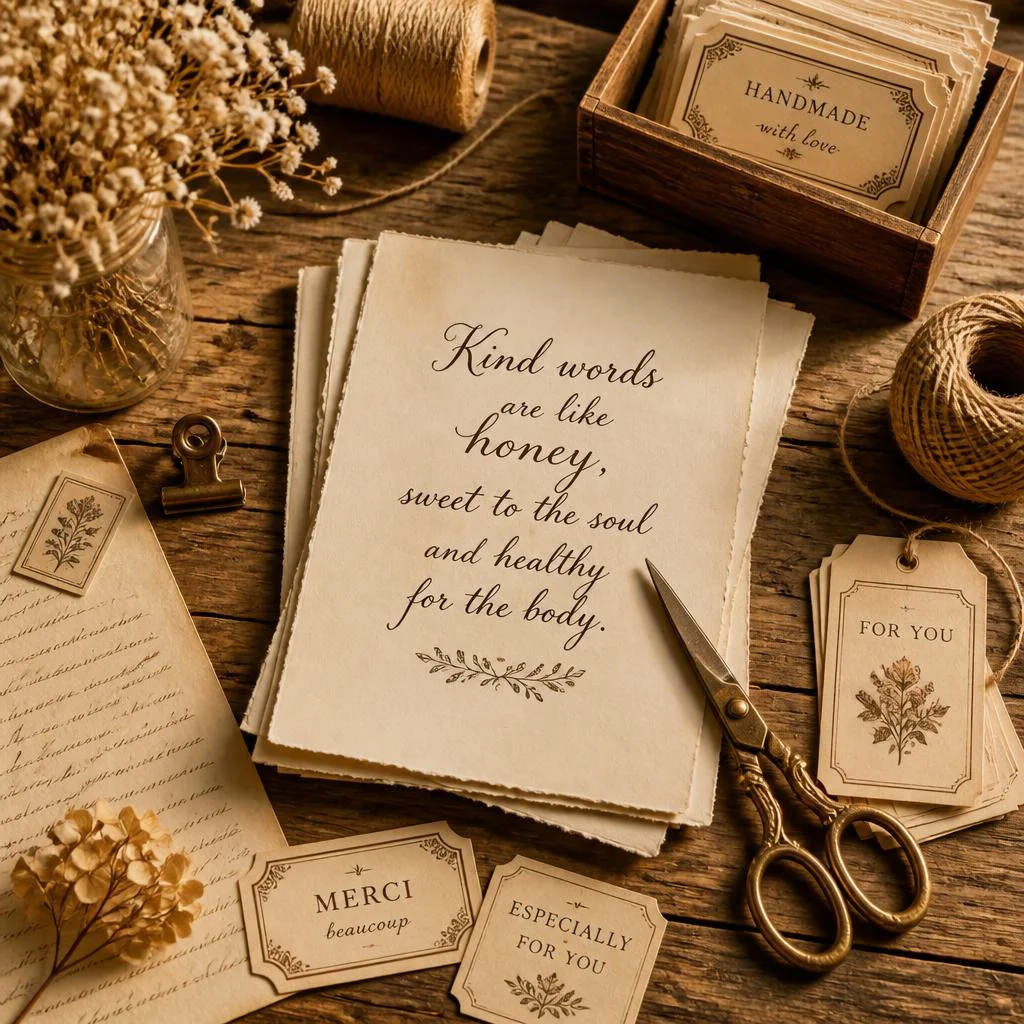 HANDMADE
with love
Kind words
are like
honey,
sweet to the soul
and healthy
for the body.
FOR YOU
MERCI
beaucoup
ESPECIALLY
FOR YOU